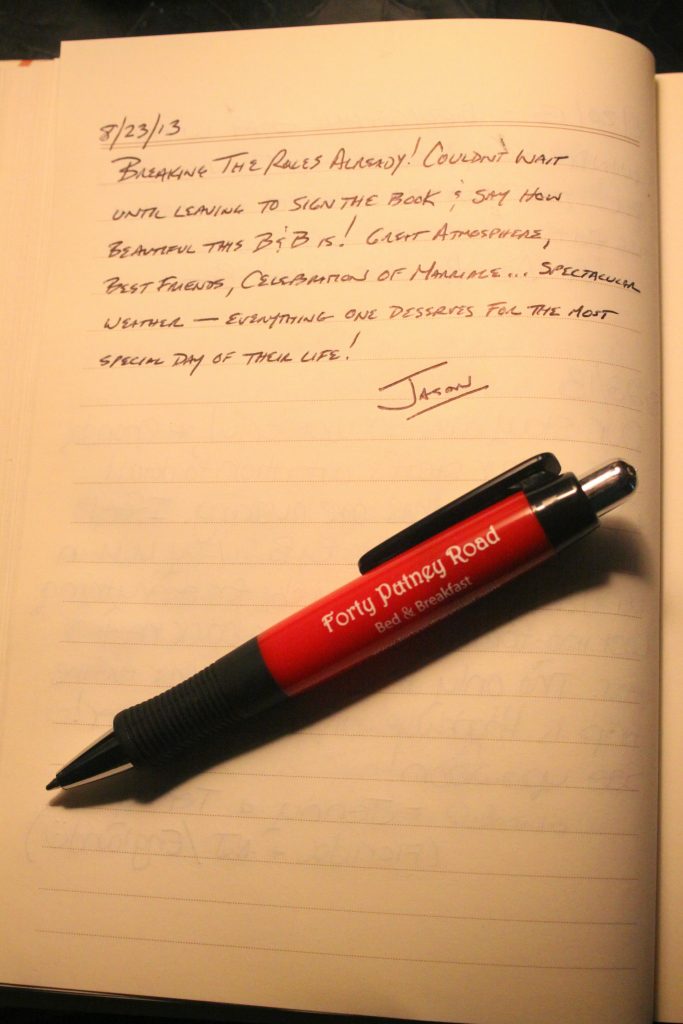 8/23/13
BREAKING THE RULES ALREADY! COULDN'T WAIT
UNTIL LEAVING TO SIGN THE BOOK & SAY HOW
BEAUTIFUL THIS B&B IS! GREAT ATMOSPHERE,
BEST FRIENDS, CELEBRATION OF MARRIAGE... SPECTACULAR
WEATHER — EVERYTHING ONE DESERVES FOR THE MOST
SPECIAL DAY OF THEIR LIFE!
JASON
Forty Putney Road
Bed & Breakfast